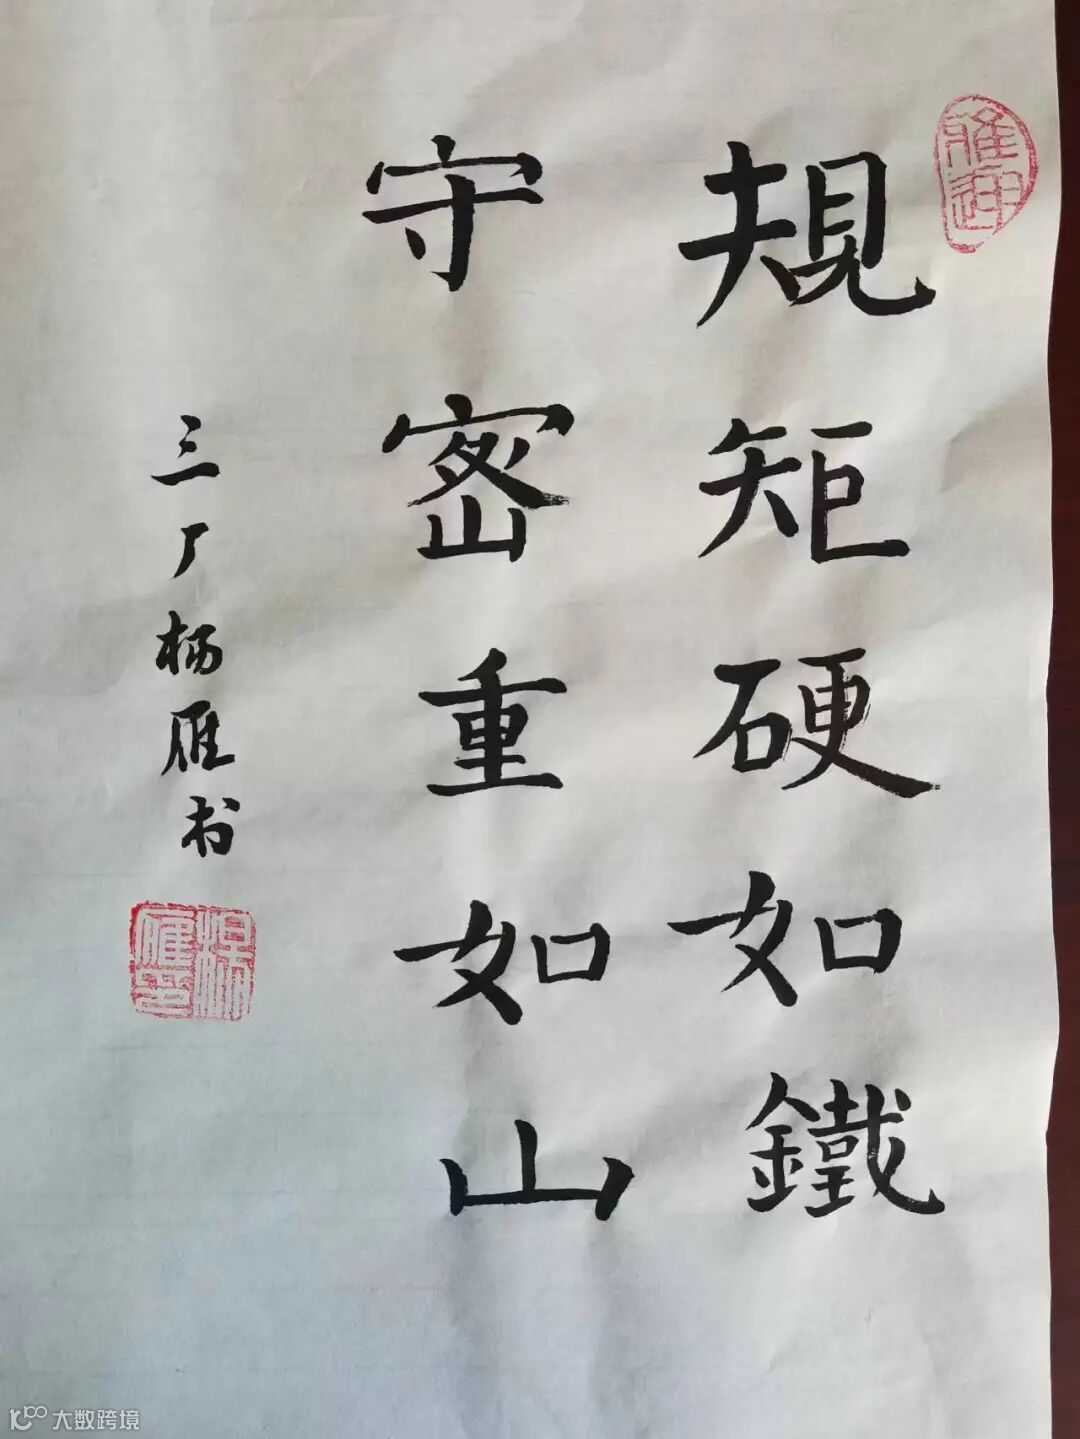 規矩硬如鐵
守密重如山
三厂杨雁书
大数跨境